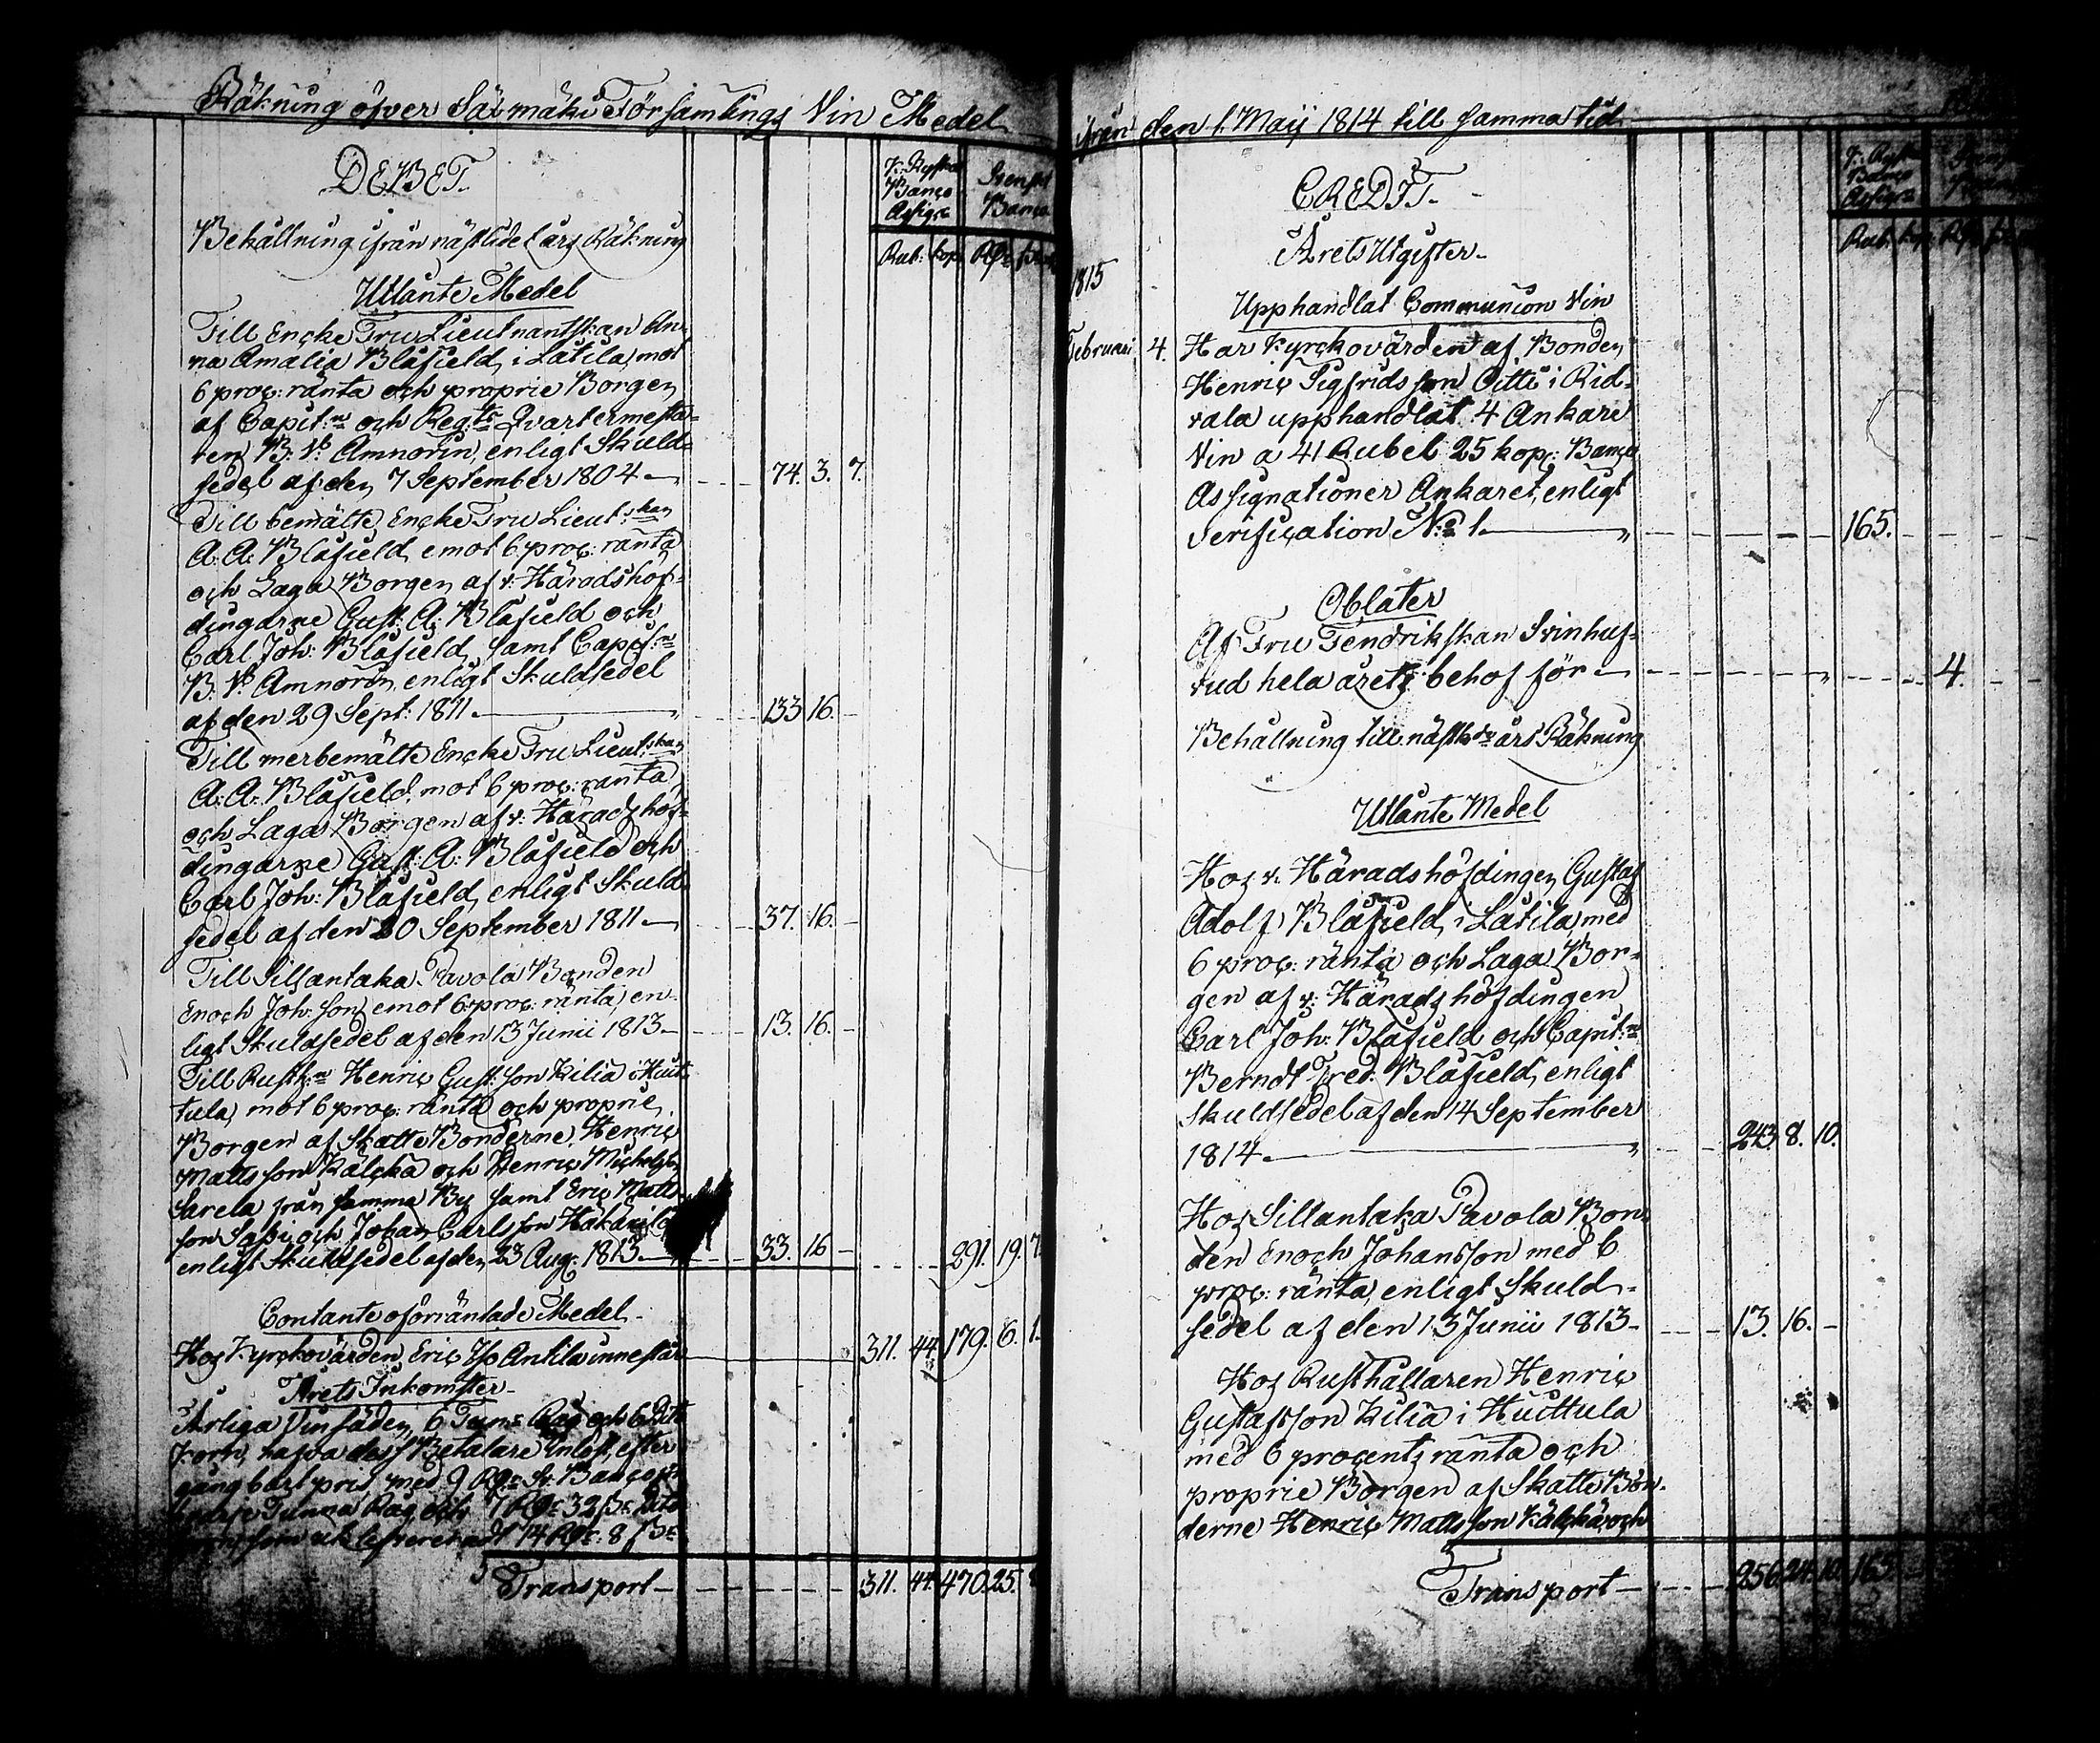 Räkning öfver Säkmäki Församlings Vin Medel
DEBET.
K. Ryska Banco Assigr
Svenskt Banco
Rub: kop. Rdr sk
Behållning ifrån nästlidet års Räkning
Utlänte Medel
Till Encke Fru Lieutnantskan An-
na Amalia Blåfield, i Latila, mot
6 proc: ränta och proprie Borgen
af Capit:n och Reg:ts Qvartermesta-
ren B: W: Amnorin, enligt Skuld-
sedel af den 7 September 1804 74. 3. 7.
Till bemälte Encke Fru Lieut:skan
A: A: Blåfield emot 6 proc: ränta
och Laga Borgen af v: Häradshöf-
dingarne Gust: A: Blåfield och
Carl Joh: Blåfield, samt Capit:n
B: W: Amnorin, enligt Skuldsedel
af den 29 Sept: 1811 133 16. -
Till merbemälte Encke Fru Lieut:skan
A: A: Blåfield, mot 6 proc: ränta,
och Laga Borgen af v: Häradshöf-
dingarne Gust: A: Blåfield och
Carl Joh: Blåfield, enligt Skuld-
sedel af den 20 September 1811 37. 16. -
Till Sillantaka Pavola Bonden
Enoch Joh: son emot 6 proc: ränta, en-
ligt Skuldsedel af den 13 Junii 1813 13. 16. -
Till Rusth:n Henric Gust: son Kilia i Huit-
tula, mot 6 proc: ränta och proprie
Borgen af Skatte Bönderne, Henric
Matts son Kälckä och Henric Michelss:
Sarela från samma By samt Eric Matts
son Sassi och Johan Carlsson Hakanila
enligt Skuldsedel af den 23 Aug: 1813 33. 16 - 291. 19. 7.
Contante oförräntade Medel
Hos Kyrckovärden Eric Antila innestår 311. 44. 179. 6. 1.
Årets Inkomster
Årliga Vinsäden, 6 Tunr Råg och 6 Dito
Korn, hafva dess Betalare inlöst, efter
gångbart pris, med 9 Rdr Sv: Banco
hvarje Tunna Råg och 7 Rdr 32 sk: Dito
som utlefvererad 14 Rdr: 8 sk
Transport 311. 44. 470. 25.
ifrån den 1. Maij 1814 till samma tid
CREDIT.
K. Ryska Banco Assigr
Rub: kop. Rdr
Årets Utgifter
1815
Upphandlat Communion Vin
Februari 4. Har Kyrckovärden af Bonden
Henric Sigfrids son Oitti i Rid-
vala upphandlat 4 Ankare
Vin a 41 Rubel 25 kop: Banco
Assignationer Ankaret, enligt
Verification N:o 1. 165.
Oblater
Af Fru Fendrikskan Svinhuf-
vud hela årets behof för 4.
Behållning till nästk:de års Räkning
Utlänte Medel
Hos v: Häradshöfdingen Gustaf
Adolf Blåfield, i Latila, med
6 proc: ränta och Laga Bor-
gen af v: Häradshöfdingen
Carl Joh: Blåfield och Capit:n
Berndt Fred: Blåfield, enligt
skuldsedel af den 14 September
1814. 243. 8. 10.
Hos Sillantaka Pavola Bon-
den Enoch Johansson med 6
proc: ränta, enligt Skuld-
sedel af den 13 Junii 1813 13. 16. -
Hos Rusthållaren Henric
Gustafsson Kilia i Huittula
med 6 procents ränta och
proprie Borgen af Skatte Bön-
derne Henric Matts son Kälckä, och
Transport 256. 24. 10. 165.